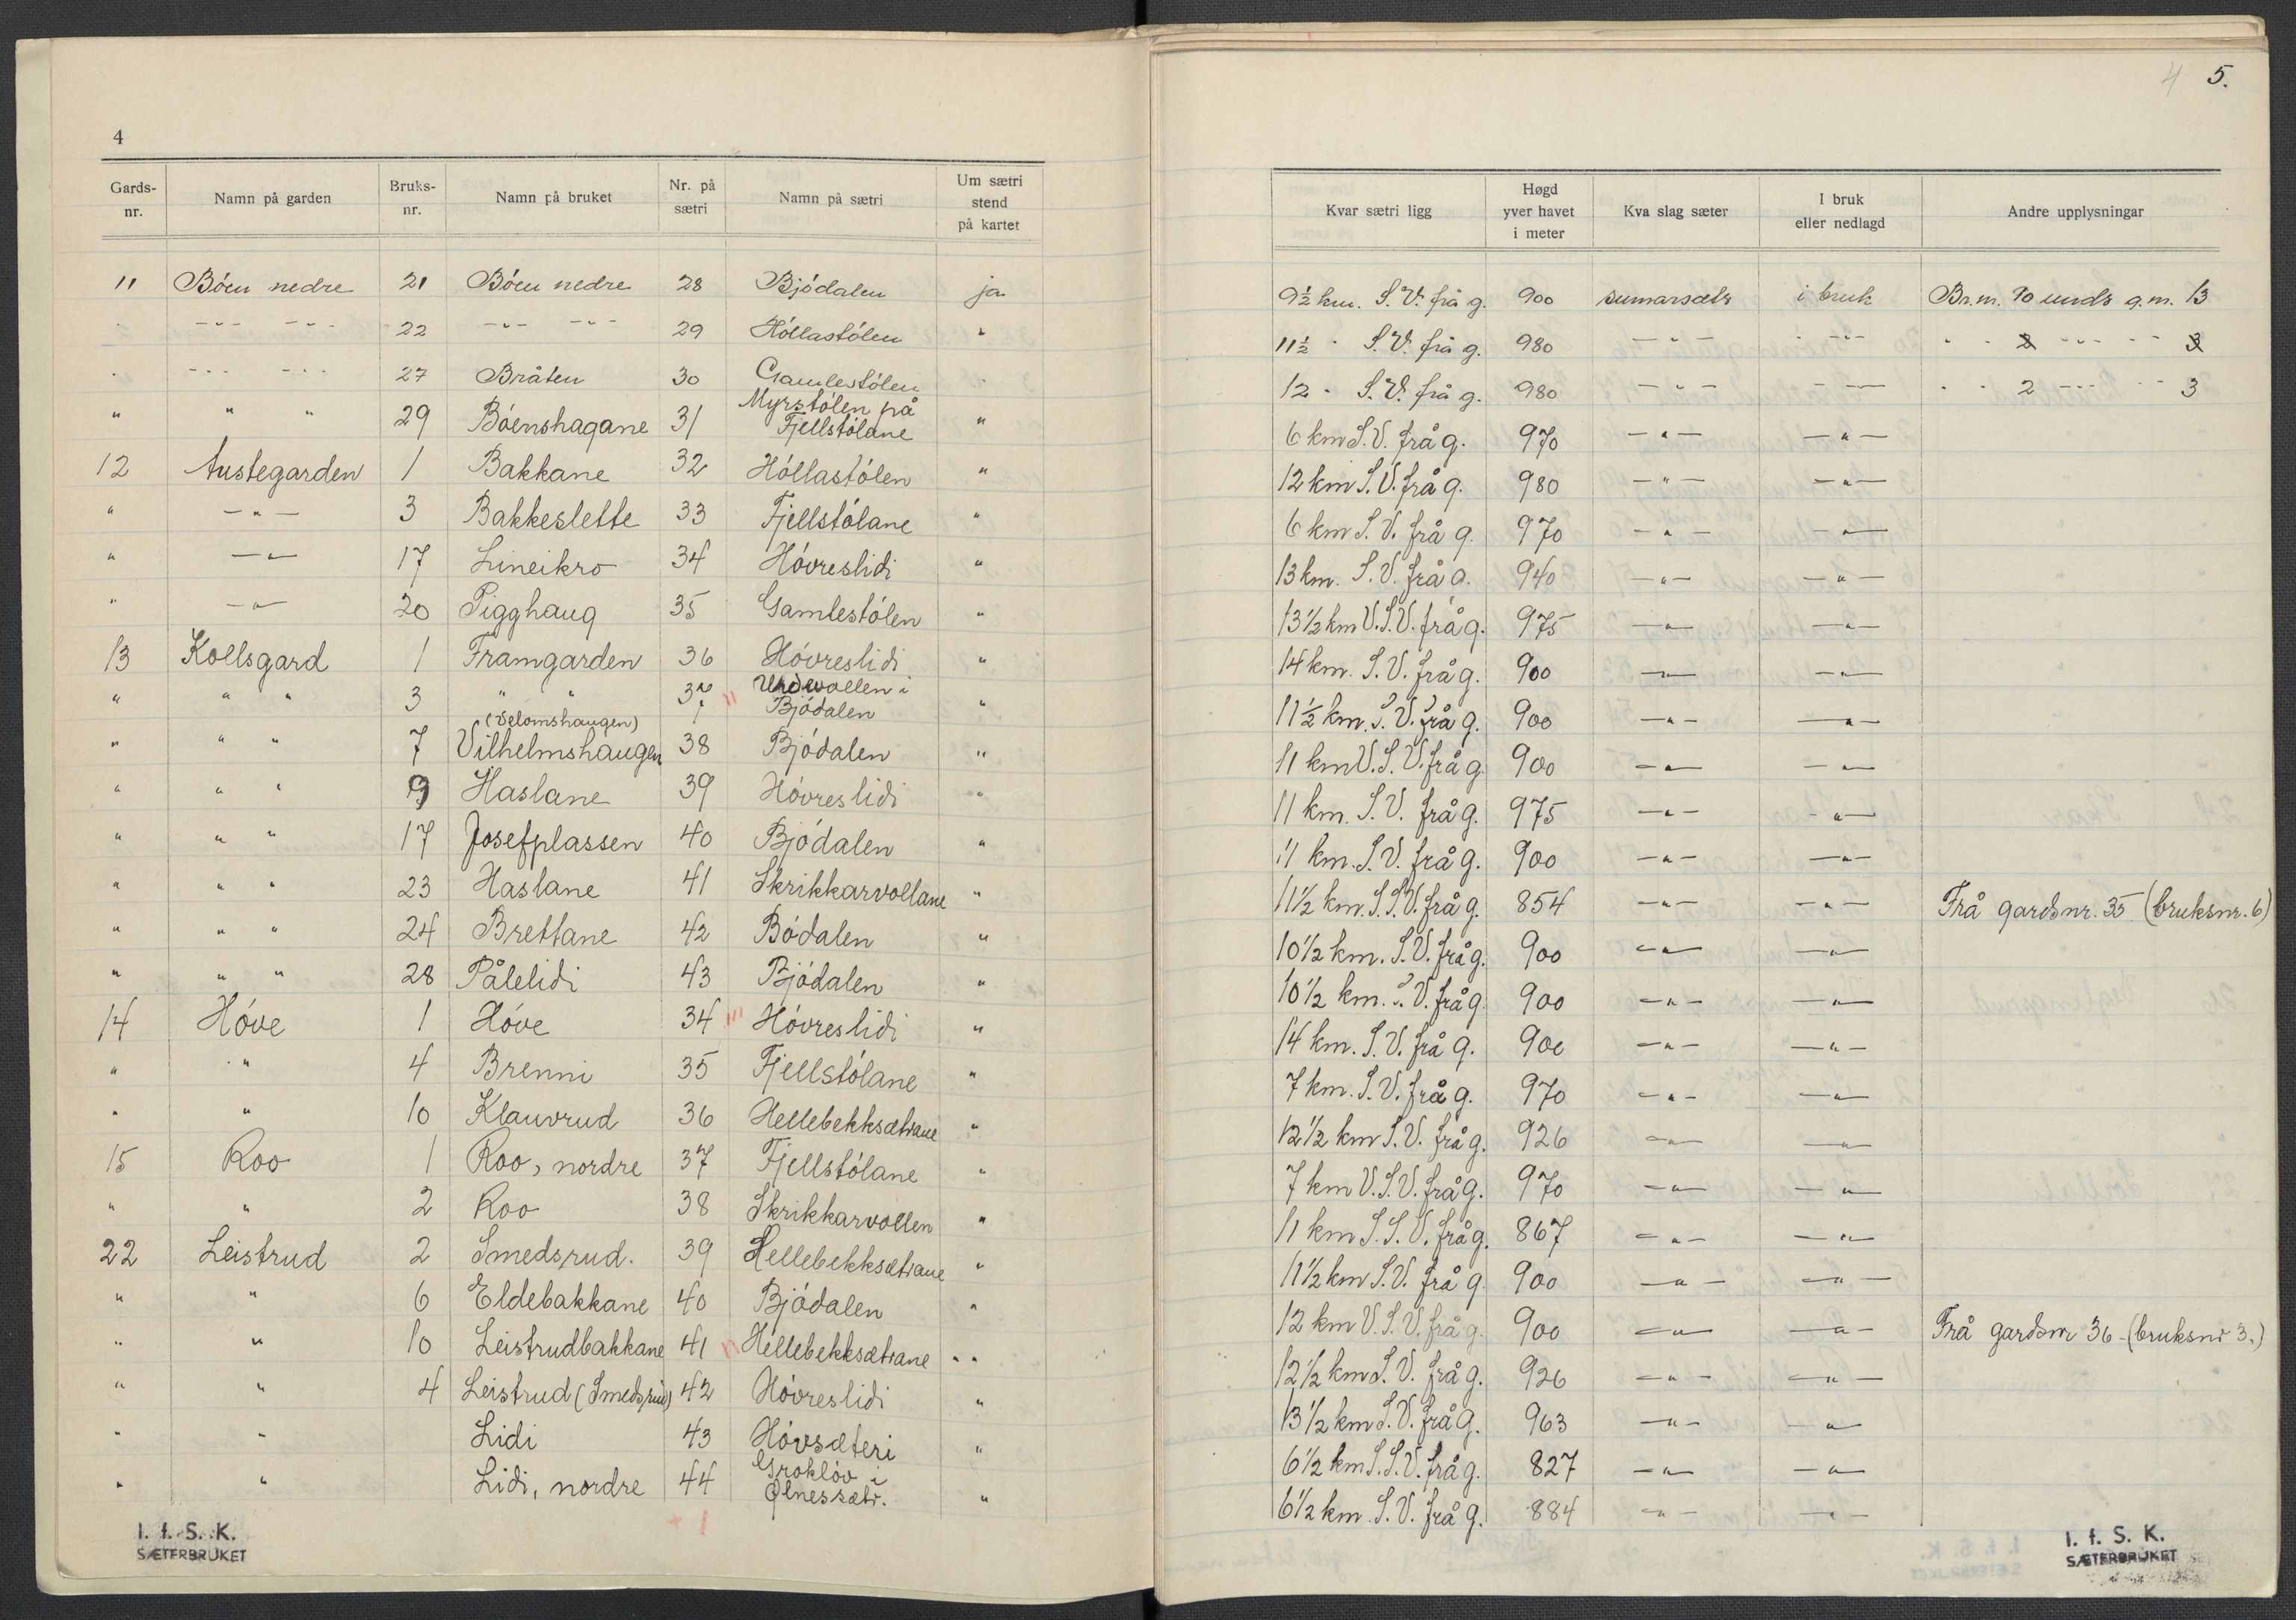 4
Gards-nr. | Namn på garden | Bruks-nr. | Namn på bruket | Nr. på sætri | Namn på sætri | Um sætri stend på kartet
11 | Bóen nedre | 21 | Bóen nedre | 28 | Bjódalen | ja
" | -"- -"- | 22 | -"- -"- | 29 | Hóllastólen | "
" | -"- -"- | 27 | Bråten | 30 | Gamlestólen | "
" | " " | 29 | Bóenshagane | 31 | Myrstólen på Fjellstólane | "
12 | Austegarden | 1 | Bakkane | 32 | Hóllastólen | "
" | -"- | 3 | Bakkeslette | 33 | Fjellstólane | "
" | -"- | 17 | Lineikro | 34 | Hóvreslidi | "
" | -"- | 20 | Pigghaug | 35 | Gamlestólen | "
13 | Kollsgard | 1 | Framgarden | 36 | Hóvreslidi | "
" | " " | 3 | " " | 37 | Urdevollen i Bjódalen | "
" | " " | 7 | (Velomshaugen) Vilhelmshaugen | 38 | Bjódalen | "
" | " " | 9 | Haslane | 39 | Hóvreslidi | "
" | " " | 17 | Josefplassen | 40 | Bjódalen | "
" | " " | 23 | Haslane | 41 | Skrikkarvollane | "
" | " " | 24 | Brettane | 42 | Bódalen | "
" | " " | 28 | Pålelidi | 43 | Bjódalen | "
14 | Hóve | 1 | Hóve | 34 | Hóvreslidi | "
" | " | 4 | Brenni | 35 | Fjellstólane | "
" | " | 10 | Klauvrud | 36 | Hellebekksætrane | "
15 | Roo | 1 | Roo, nordre | 37 | Fjellstólane | "
" | " | 2 | Roo | 38 | Skrikkarvollen | "
22 | Leistrud | 2 | Smedsrud. | 39 | Hellebekksætrane | "
" | " | 6 | Eldebakkane | 40 | Bjódalen | "
" | " | 10 | Leistrudbakkane | 41 | Hellebekksætrane | "
" | " | 4 | Leistrud (Smedsrud) | 42 | Hóvreslidi | "
" | " | | Lidi | 43 | Hóvsæteri | "
" | " | | Lidi, nordre | 44 | Groklóv i Ølnessætr. | "
+ 1
I. f. S. K.
SÆTERBRUKET
4 5.
Kvar sætri ligg | Høgd yver havet i meter | Kva slag sæter | I bruk eller nedlagd | Andre upplysningar
9½ km. S.V. frå g. | 900 | sumarsætr | i bruk | Br.n. 70 unds g.n. 13
11½ " S.V. frå g. | 980 | -"- | -"- | " " 2 -"- " 3
12 " S.V. frå g. | 980 | -"- | -"- | " " 2 -"- " 3
6 km S.V. frå g. | 970 | -"- | -"-
12 km S.V. frå g. | 980 | -"- | -"-
6 km S.V. frå g. | 970 | -"- | -"-
13 km. S.V. frå g. | 940 | -"- | -"-
13 1/2 km V.S.V. frå g. | 975 | -"- | -"-
14 km. S.V. frå g. | 900 | -"- | -"-
11 1/2 km. S.V. frå g. | 900 | -"- | -"-
11 km V.S.V. frå g. | 900 | -"- | -"-
11 km. S.V. frå g. | 975 | -"- | -"-
11 km. S.V. frå g. | 900 | -"- | -"-
11 1/2 km. S.S.V. frå g. | 854 | -"- | -"- | Frå gardsnr. 35 (bruksnr. 6)
10 1/2 km. S.V. frå g. | 900 | -"- | -"-
10 1/2 km. S.V. frå g. | 900 | -"- | -"-
14 km. S.V. frå g. | 900 | -"- | -"-
7 km. S.V. frå g. | 970 | -"- | -"-
12 1/2 km S.V. frå g. | 926 | -"- | -"-
7 km V.S.V. frå g. | 970 | -"- | -"-
11 km S.S.V. frå g. | 867 | -"- | -"-
11 1/2 km S.V. frå g. | 900 | -"- | -"-
12 km V.S.V. frå g. | 900 | -"- | -"- | Frå gardsnr 36 - (bruksnr 3.)
12 1/2 km S.V. frå g. | 926 | -"- | -"-
13 1/2 km S.V. frå g. | 963 | -"- | -"-
6 1/2 km S.S.V. frå g. | 827 | -"- | -"-
6 1/2 km S.V. frå g. | 884 | -"- | -"-
I. f. S. K.
SÆTERBRUKET